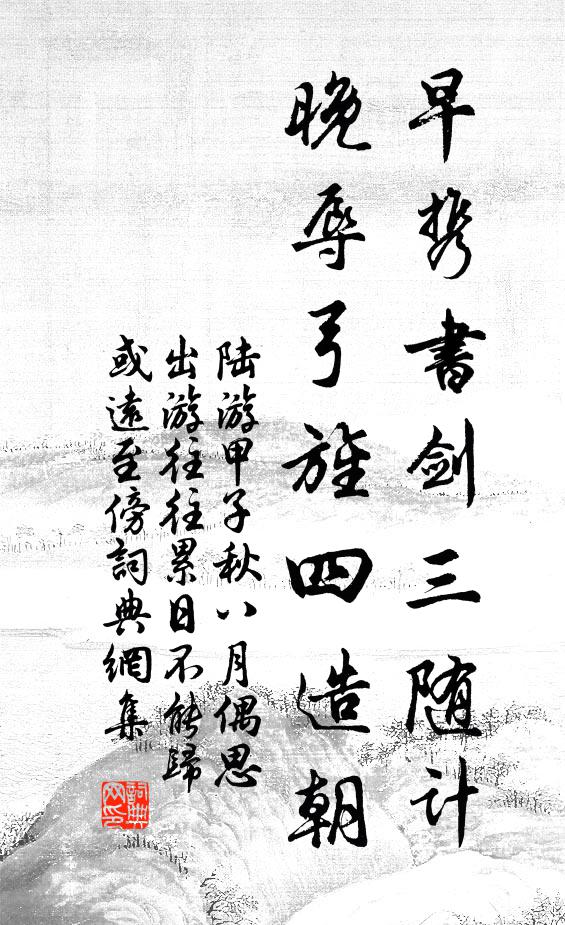 早携書劍三随计
晚辱弓旌四造朝
陆游甲子秋八月偶思
出游往往累日不能歸
或遠至傍詞典網集
詞典
网印